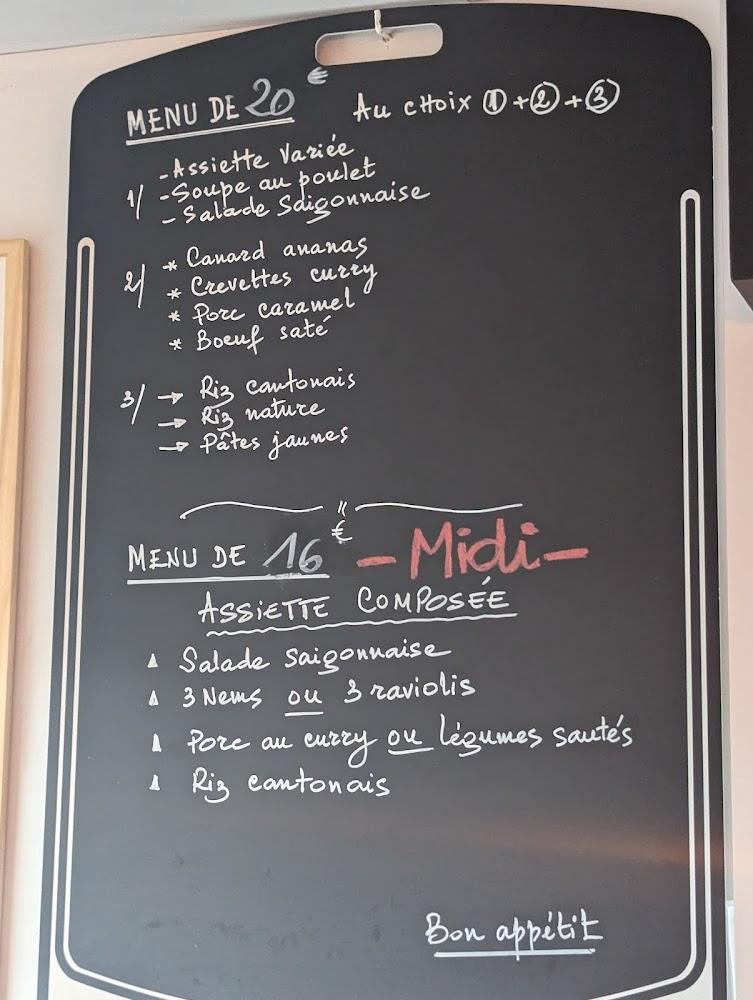 MENU DE 20 € Au choix ① + ② + ③
1/ - Assiette Variée
- Soupe au poulet
- Salade Saigonnaise
2/ * Canard ananas
* Crevettes curry
* Porc caramel
* Boeuf saté
3/ → Riz cantonais
→ Riz nature
→ Pâtes jaunes
MENU DE 16 € - Midi -
ASSIETTE COMPOSÉE
Salade saigonnaise
3 Nems ou 3 raviolis
Porc au curry ou légumes sautés
Riz cantonais
Bon appétit